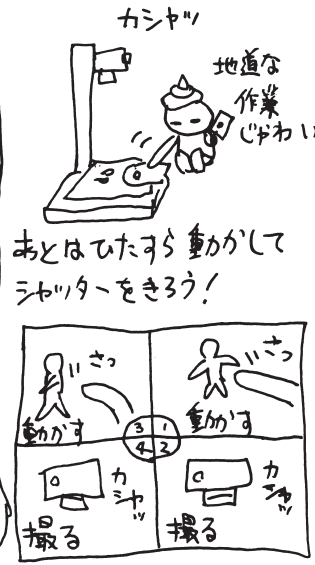 カシャッ
地道な
作業
じゃわい
あとはひたすら動かして
シャッターをきろう!
さっ
動かす
さっ
動かす
3 1
4 2
カシャッ
撮る
カシャッ
撮る